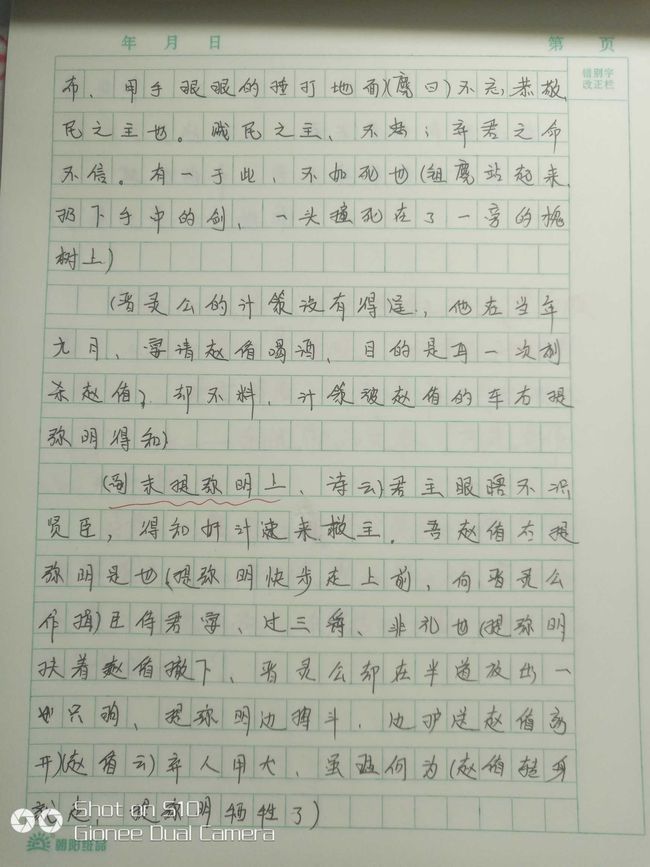 年 月 日 第 页
错别字
改正栏
布、用手狠狠的捶打地面)(麑曰)不忘恭敬,
民之主也。贼民之主、不忠;弃君之命
不信。有一于此、不如死也(鉏麑站起来,
扔下手中的剑、一头撞死在了一旁的槐
树上)
(晋灵公的计策没有得逞,他在当年
九月、宴请赵盾喝酒、目的是再一次刺
杀赵盾,却不料,计策被赵盾的车右提
弥明得知)
(副末提弥明上、诗云)君主眼瞎不识
贤臣,得知奸计速来救主。吾赵盾右提
弥明是也(提弥明快步走上前,向晋灵公
作揖)臣侍君宴、过三爵、非礼也(提弥明
扶着赵盾撤下、晋灵公却在半道放出一
只狗、提弥明边搏斗、边护送赵盾离
开)(赵盾云)弃人用犬、虽猛何为(赵盾转身
就走、提弥明牺牲了)
Shot on S10
Gionee Dual Camera
朝阳纸品